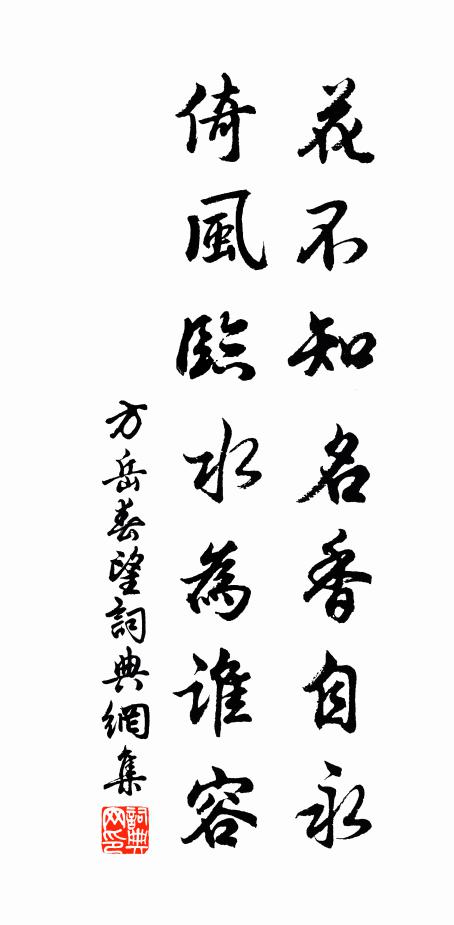 花不知名香自永
倚風臨水為誰容
方岳春望詞典網集
詞典網印